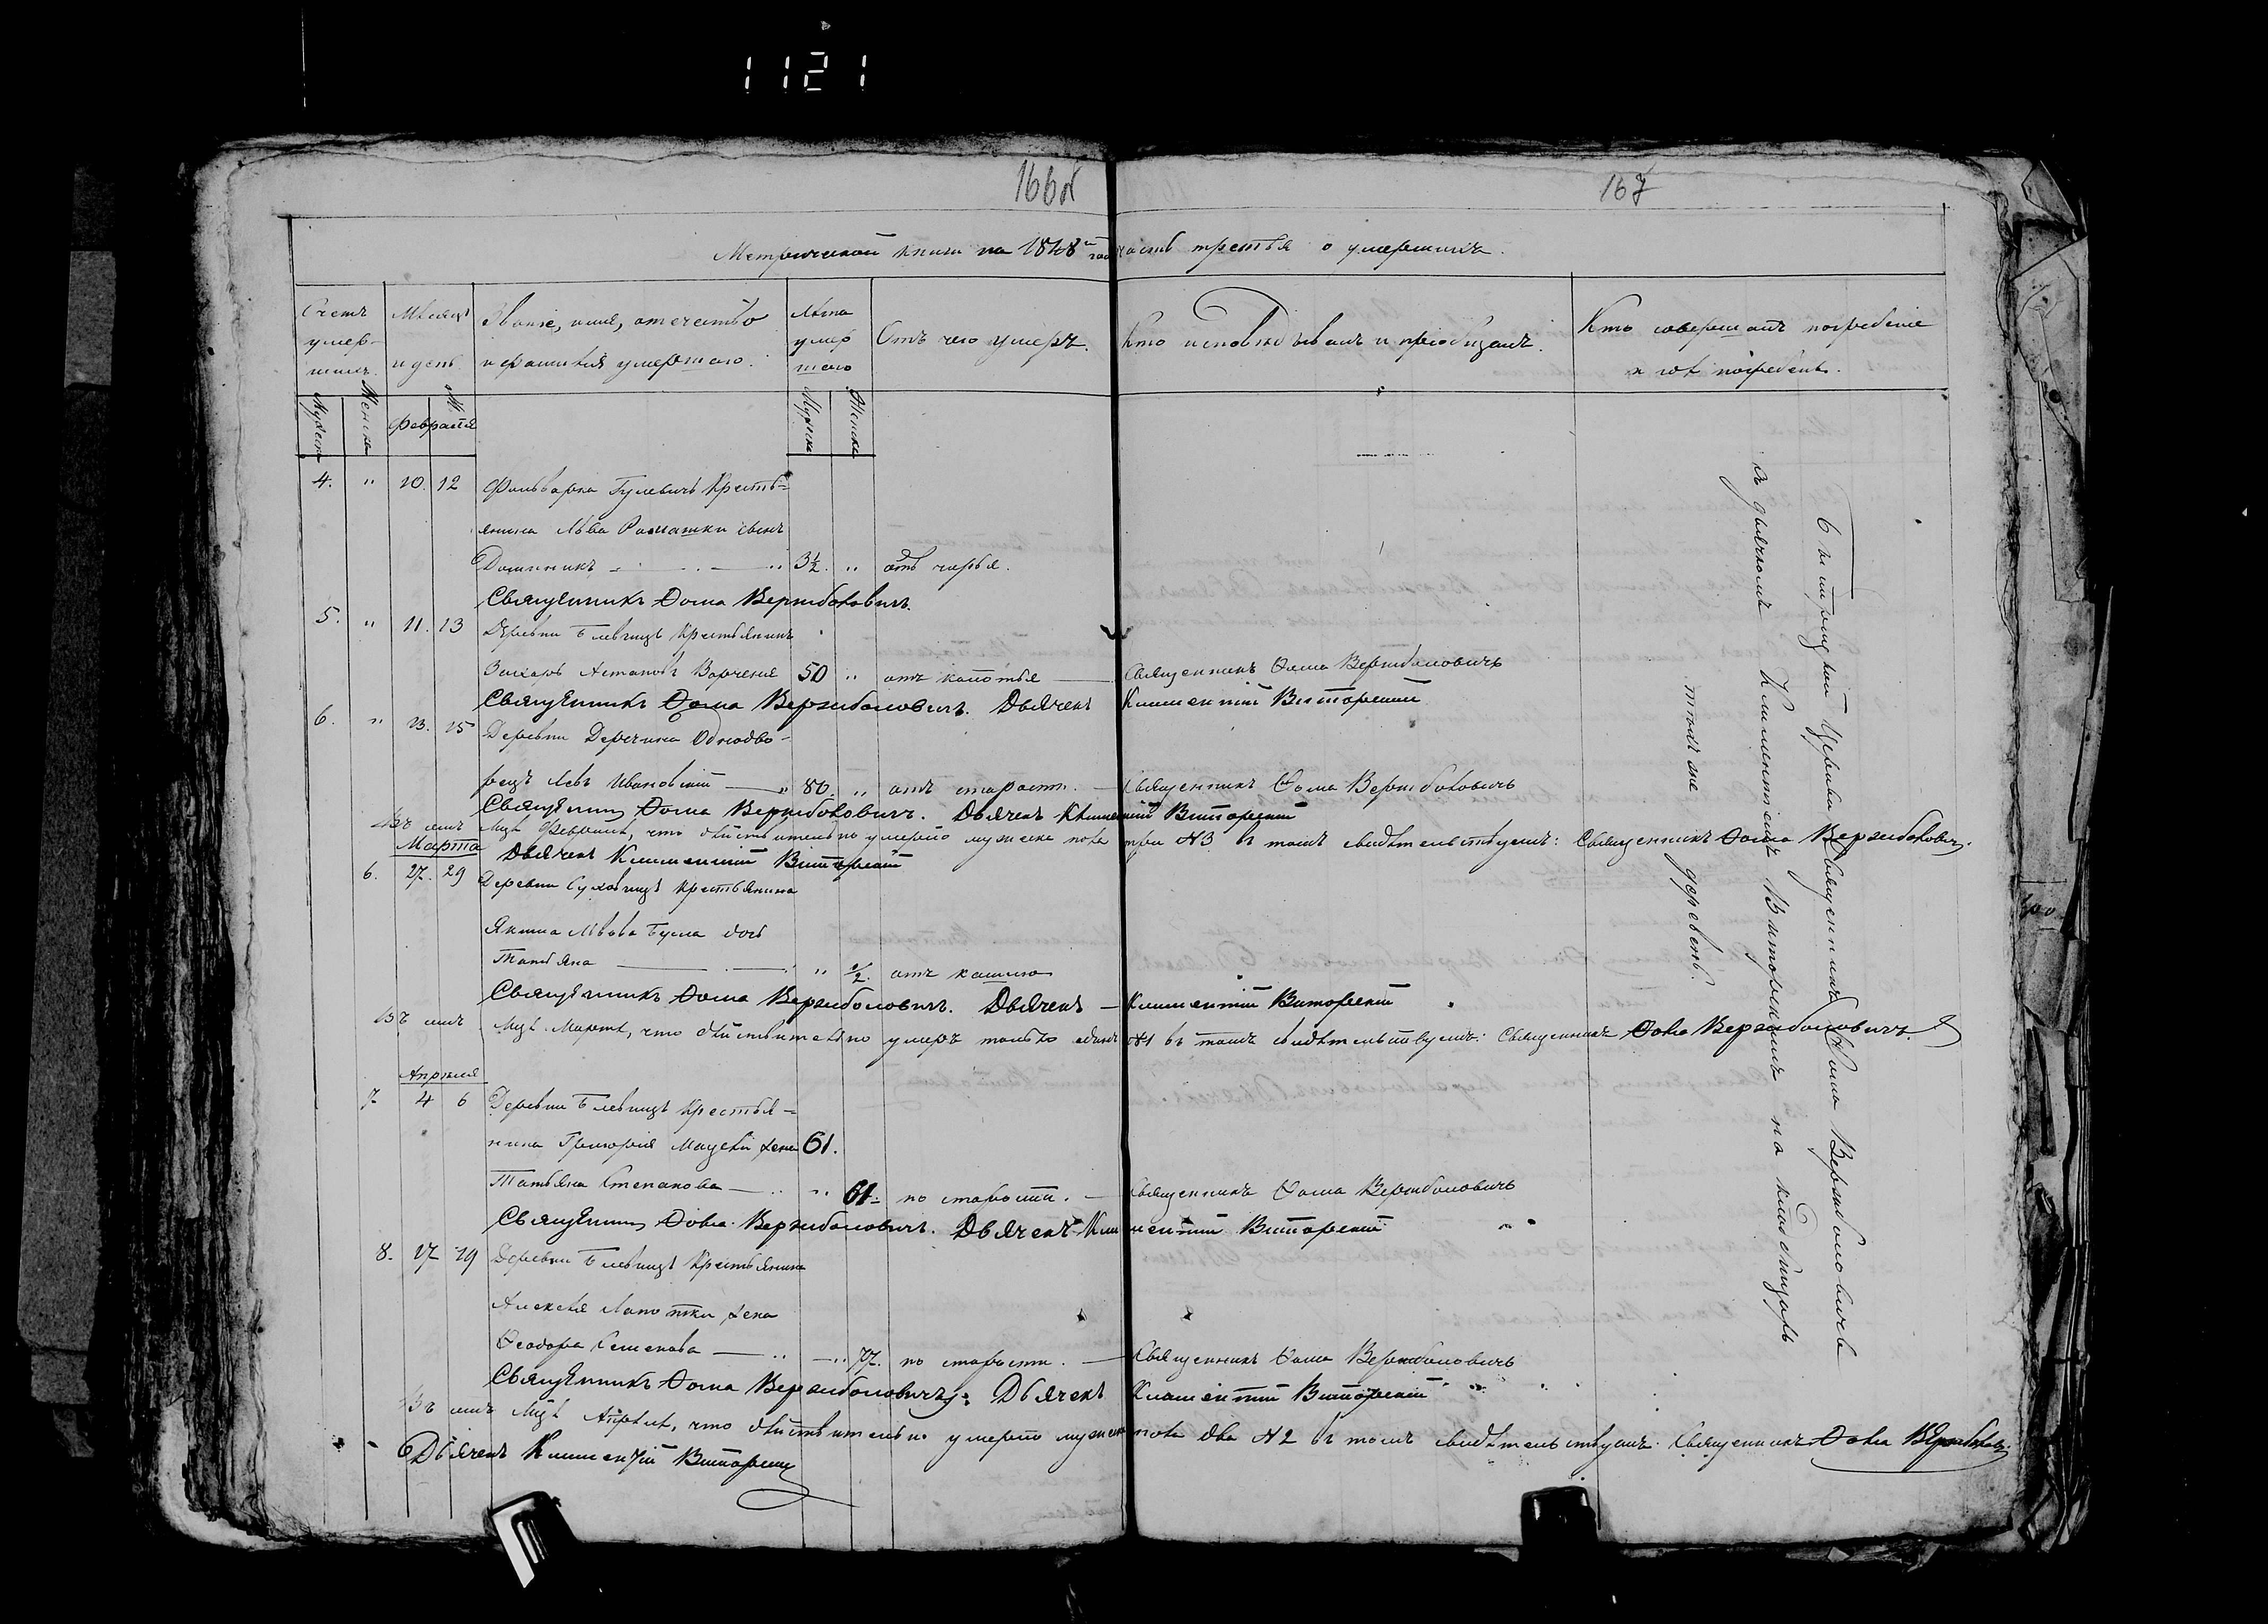 1121
166об
167
Метрической книги на 1848й годъ часть третья о умершихъ.
Счетъ умер-шихъ.
Мѣсяцъ и день
Званіе, имя, отечество и фамилія умершаго.
Лѣта умершаго
Отъ чего умеръ.
Кто исповѣдывалъ и пріобщалъ.
Кто совершалъ погребеніе и гдѣ погребенъ.
Мужеска
Женска
М.
Февраля
Мужска
Женска
4. " 10. 12 Фольварка Гулевичъ Кресть=
янина Льва Ромашки сынъ
Доминикъ 3½. " отъ
Священникъ Ѳома Вержболовичъ.
5. " 11. 13 Деревни Блевчицъ Крестьянинъ
Захарь 50 " отъ колотья Священникъ Ѳома Вержболовичъ
Священникъ Ѳома Вержболовичъ. Дьячекъ Климентій Виторскій
6. " 13. 15 Деревни Деречина Однодво-
рецъ Левъ Ивановскій " 80. " отъ старости. Священникъ Ѳома Вержболовичъ
Священникъ Ѳома Вержболовичъ. Дьячекъ Климентій Виторскій
Въ семъ Мцѣ Февралѣ, что дѣйствительно умерло мужеска пола три №3 въ томъ свидѣтельствуемъ: Священникъ Ѳома Вержболович.
Марта
Дьячекъ Климентій Виторскій
6. 27. 29 Деревни Суховчицъ крестьянина
Якима Львова Бусла дочь
Татьяна " ½. отъ кашлю
Священникъ Ѳома Вержболовичъ. Дьячекъ Климентій Виторскій
Въ семъ Мцѣ Мартѣ, что дѣйствительно умеръ только одинъ №1 въ томъ свидѣтельствуемъ: Священникъ Ѳома Вержболовичъ.
Апреля
7 4 6 Деревни Блевчицъ Крестья=
нина Григорія жена 61.
Татьяна Степанова " 61. по старости. Священникъ Ѳома Вержболовичъ
Священникъ Ѳома Вержболовичъ. Дьячекъ Климентій Виторскій
8. 17 19 Деревни Блевчицъ Крестьянина
Алексѣя Лапотки жена
Ѳеодора Семенова 77. по старости. Священникъ Ѳома Вержболовичъ
Священникъ Ѳома Вержболовичъ: Дьячекъ Климентій Виторскій
Въ семъ Мцѣ Апрѣлѣ, что дѣйствительно умерло мужеска пола два №2 въ томъ свидѣтельствуемъ. Священникъ Ѳома
Дьячекъ Климентій Виторскій
Церкви Священникъ Ѳома Вержболовичъ
съ дьячкомъ Климентіемъ Виторскимъ на кладбищахъ
тѣхъ же деревень.